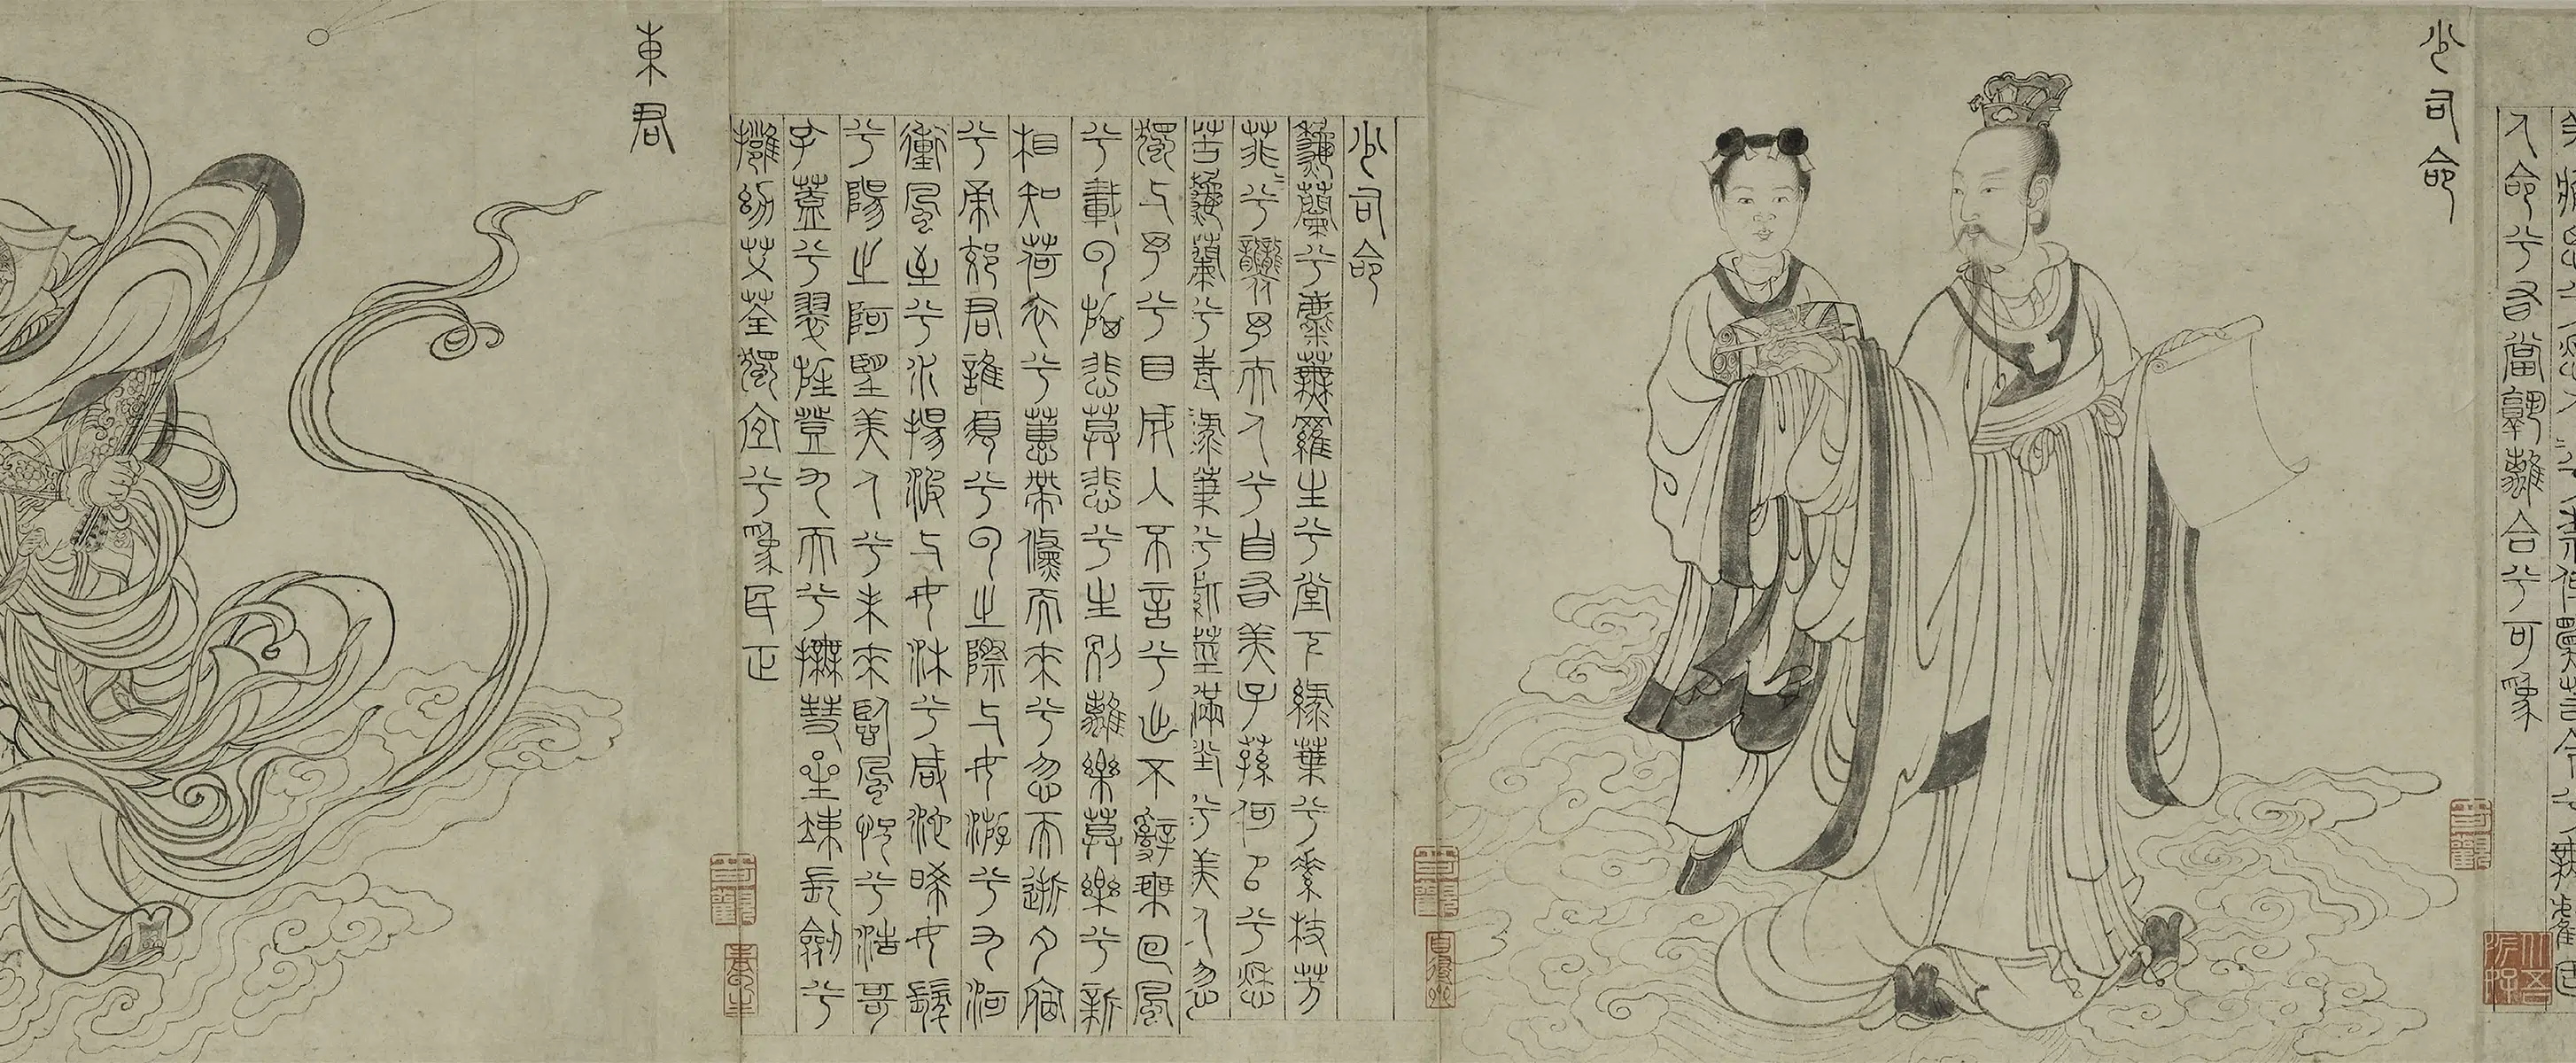 人命兮有當孰離合兮可為
少司命
少司命
秋蘭兮麋蕪羅生兮堂下綠葉兮素枝芳
菲菲兮襲予夫人兮自有美子蓀何以兮愁
苦秋蘭兮青青綠葉兮紫莖滿堂兮美人忽
獨與予兮目成入不言兮出不辭乘回風
兮載雲旗悲莫悲兮生別離樂莫樂兮新
相知荷衣兮蕙帶儵而來兮忽而逝夕宿
兮帝郊君誰須兮雲之際與女游兮九河
衝風至兮水揚波與女沐兮咸池晞女髮
兮陽之阿望美人兮未來臨風怳兮浩哥
孔蓋兮翠旌登九天兮撫彗星竦長劍兮
擁幼艾荃獨宜兮為民正
東君